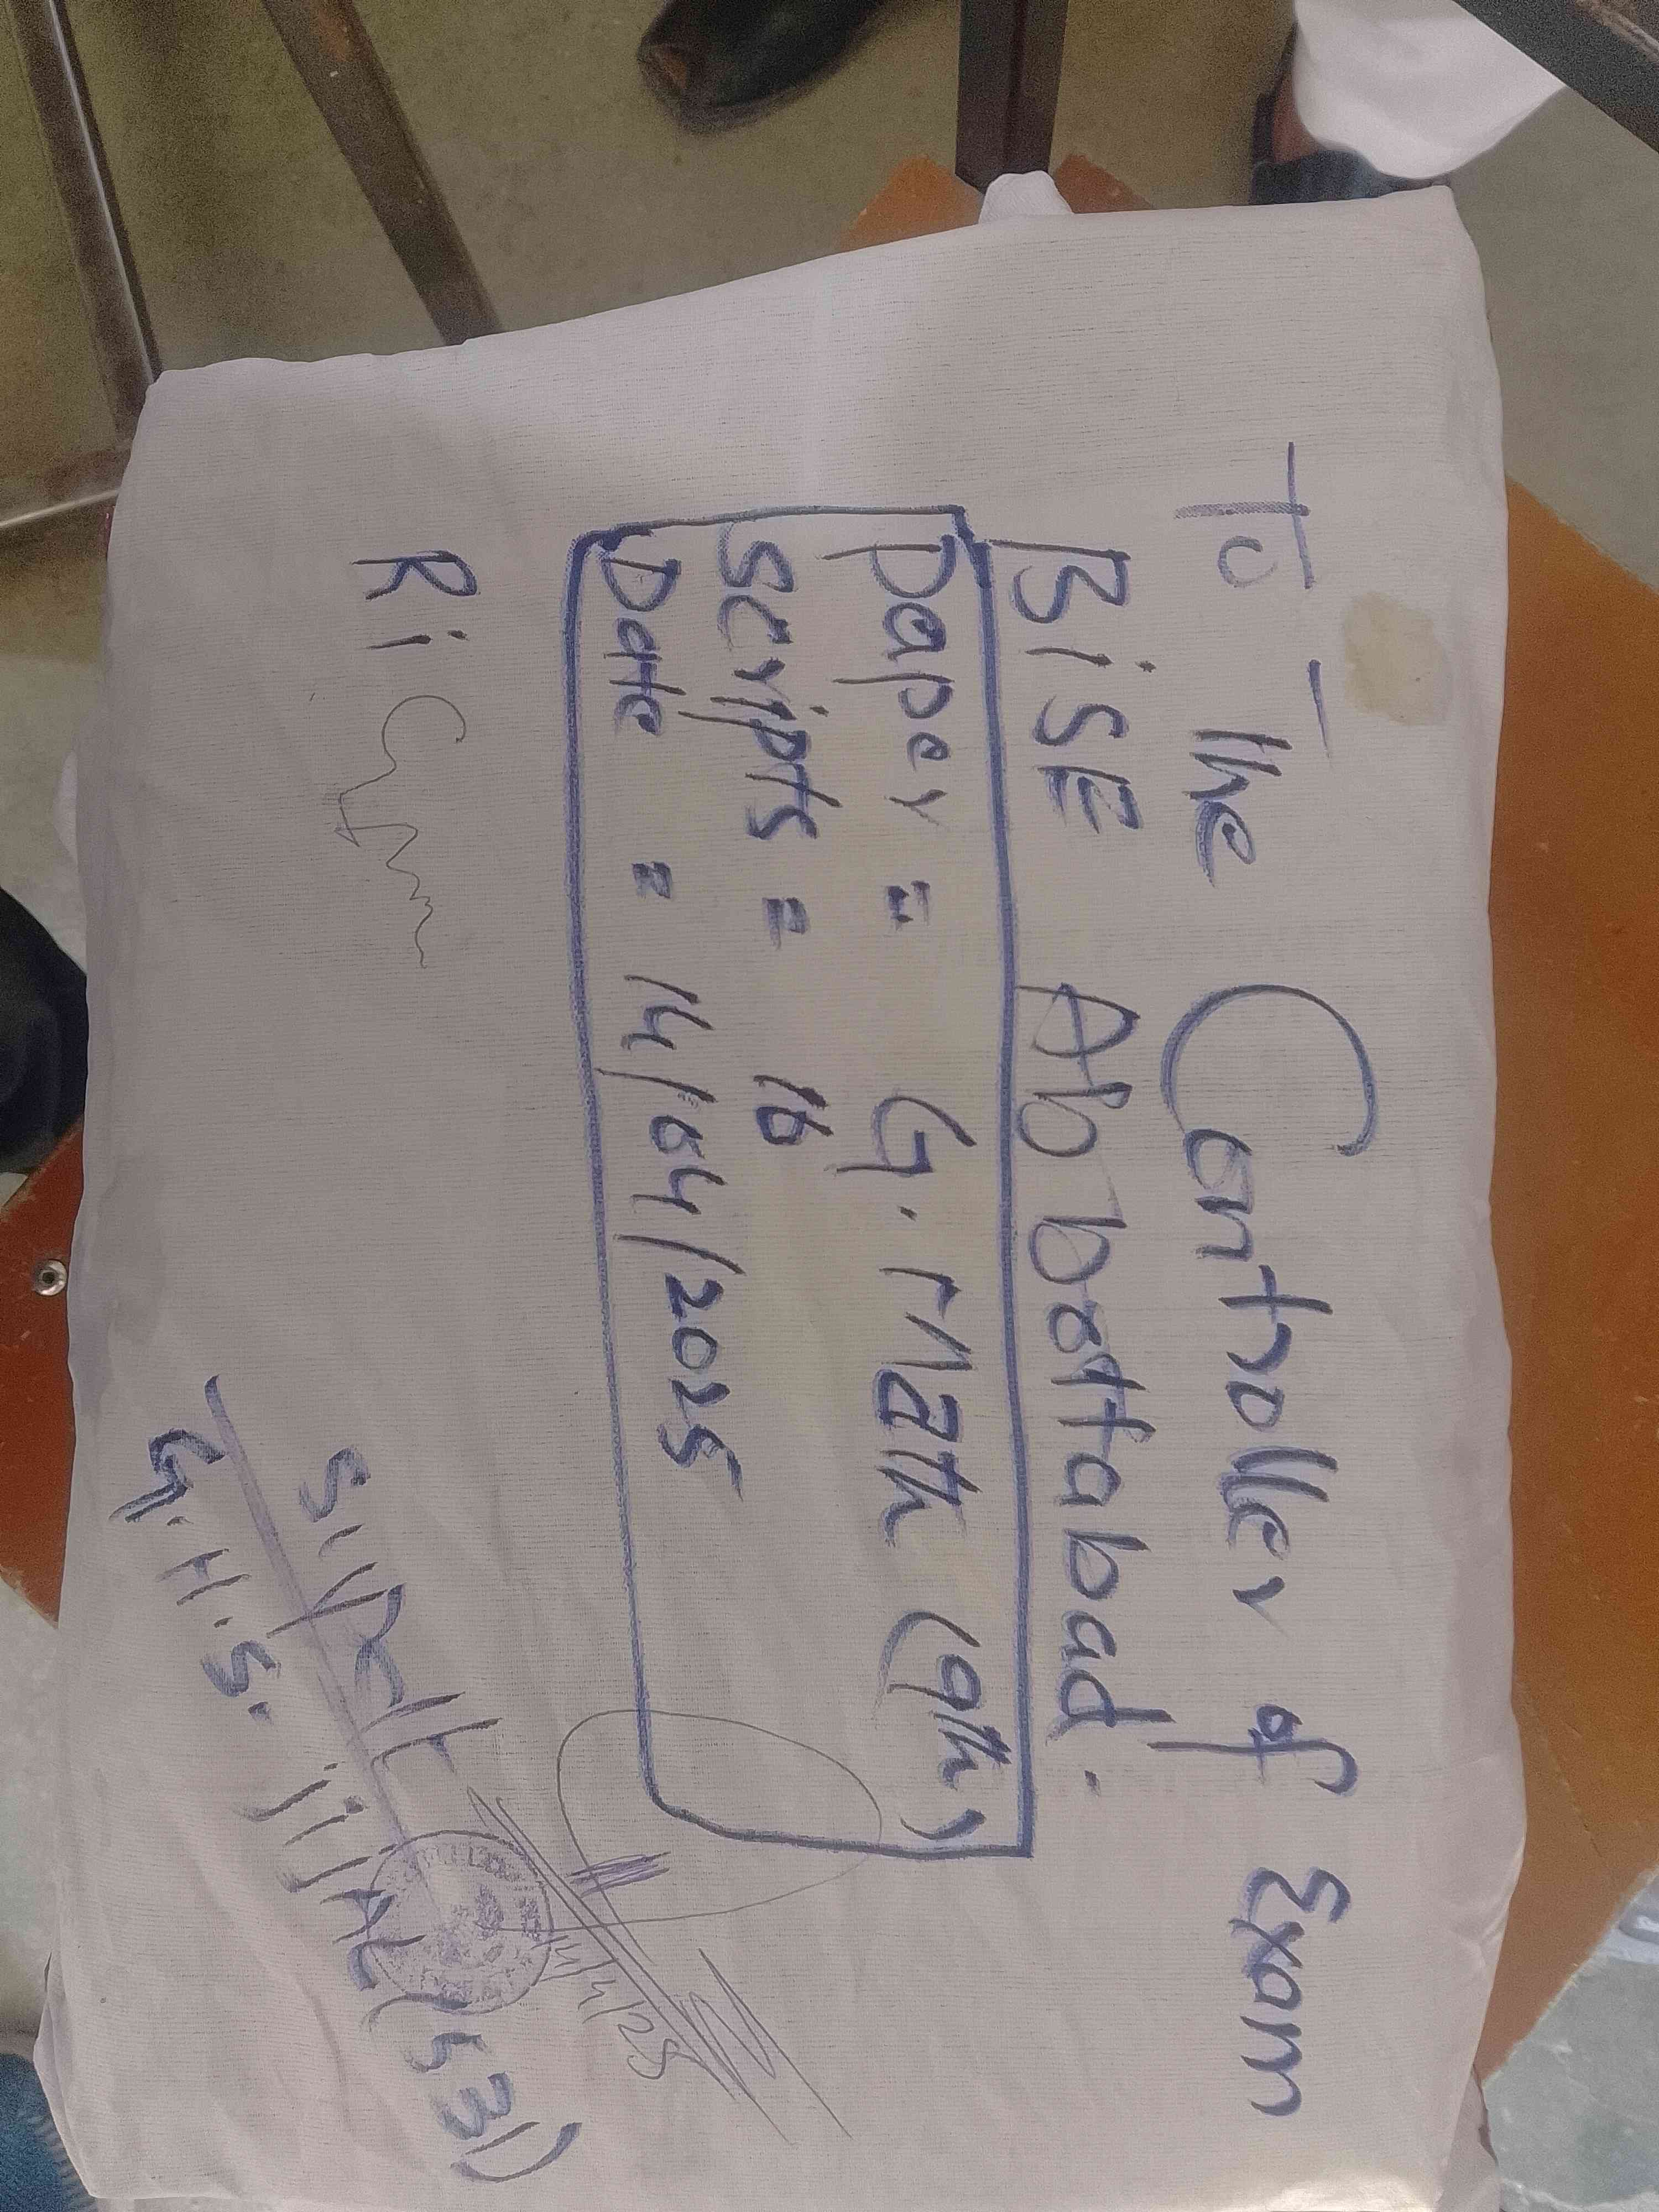 To
The Controller of Exam
BiSE Abbottabad.
Paper = G. Math (9th)
Scrypts = 16
Date = 14/04/2025
Ri
Supdt
14/4/25
G.H.S. JIJAL (531)